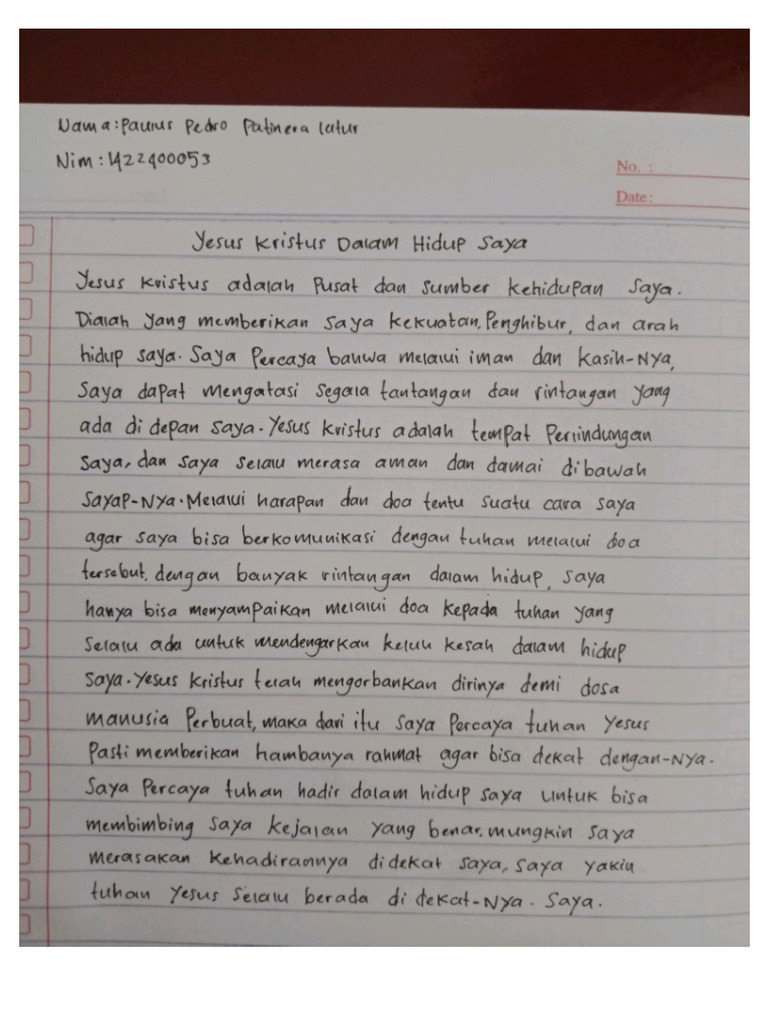 Nama: Paulus Pedro Patinera latur
Nim: 1422400053
No. :
Date:
Yesus Kristus Dalam Hidup Saya
Yesus Kristus adalah Pusat dan sumber kehidupan saya.
Dialah yang memberikan saya kekuatan, Penghibur, dan arah
hidup saya. Saya Percaya bahwa melalui iman dan kasih-Nya,
Saya dapat mengatasi segala tantangan dan rintangan yang
ada di depan saya. Yesus Kristus adalah tempat Perlindungan
saya, dan saya selalu merasa aman dan damai dibawah
sayap-Nya. Melalui harapan dan doa tentu suatu cara saya
agar saya bisa berkomunikasi dengan tuhan melalui doa
tersebut, dengan banyak rintangan dalam hidup, saya
hanya bisa menyampaikan melalui doa kepada tuhan yang
selalu ada untuk mendengarkan keluh kesah dalam hidup
saya. Yesus Kristus telah mengorbankan dirinya demi dosa
manusia Perbuat, maka dari itu saya Percaya tuhan Yesus
Pasti memberikan hambanya rahmat agar bisa dekat dengan-Nya.
Saya Percaya tuhan hadir dalam hidup saya untuk bisa
membimbing saya kejalan yang benar. mungkin saya
merasakan kehadirannya didekat saya, saya yakin
tuhan Yesus selalu berada di dekat-Nya. Saya.